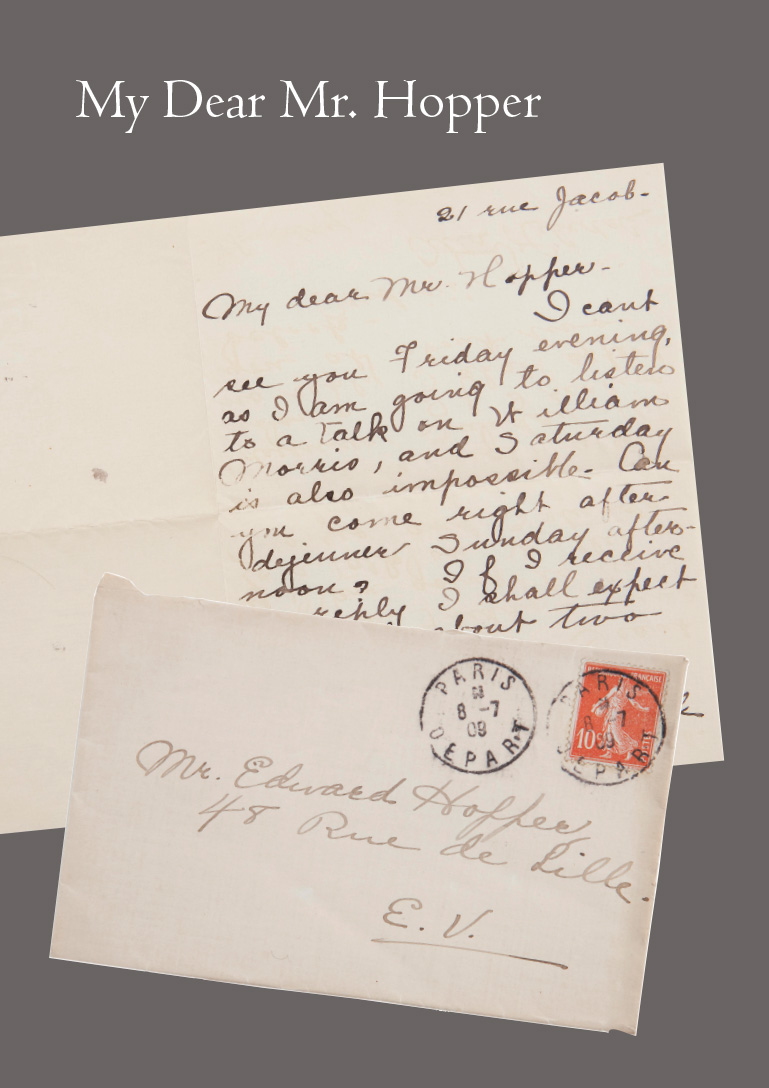 My Dear Mr. Hopper
21 rue Jacob-
My dear Mr. Hopper-
I cant
see you Friday evening,
as I am going to listen
to a talk on William
Morris, and Saturday
is also impossible- Can
you come right after
dejeuner Sunday after-
noon? If I receive
reply I shall expect
about two
PARIS
8 -7
09
DEPART
FRANÇAISE
10c
PARIS
8 -7
09
DEPART
Mr. Edward Hopper,
48 Rue de Lille.
E.V.